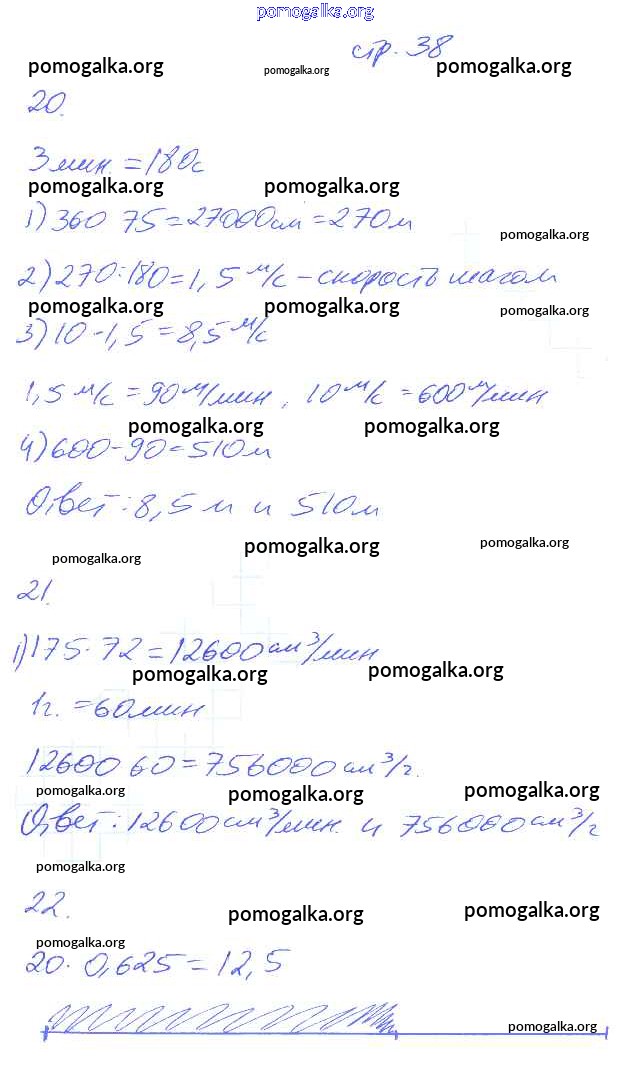 pomogalka.org
стр. 38
pomogalka.org pomogalka.org pomogalka.org
20.
3 мин. = 180с
pomogalka.org pomogalka.org
1) 360 75 = 27000см = 270м
pomogalka.org
2) 270 : 180 = 1,5 м/с - скорость шагом
pomogalka.org pomogalka.org pomogalka.org
3) 10 - 1,5 = 8,5 м/с
1,5 м/с = 90 м/мин, 10 м/с = 600 м/мин
pomogalka.org pomogalka.org
4) 600 - 90 = 510м
Ответ: 8,5 м и 510м
pomogalka.org pomogalka.org
pomogalka.org
21.
1) 175 · 72 = 12600 см³/мин
pomogalka.org pomogalka.org
1г. = 60мин
12600 60 = 756000 см³/г.
pomogalka.org pomogalka.org pomogalka.org
Ответ: 12600 см³/мин. и 756000 см³/г
pomogalka.org
22.
pomogalka.org pomogalka.org
pomogalka.org
20 · 0,625 = 12,5
pomogalka.org